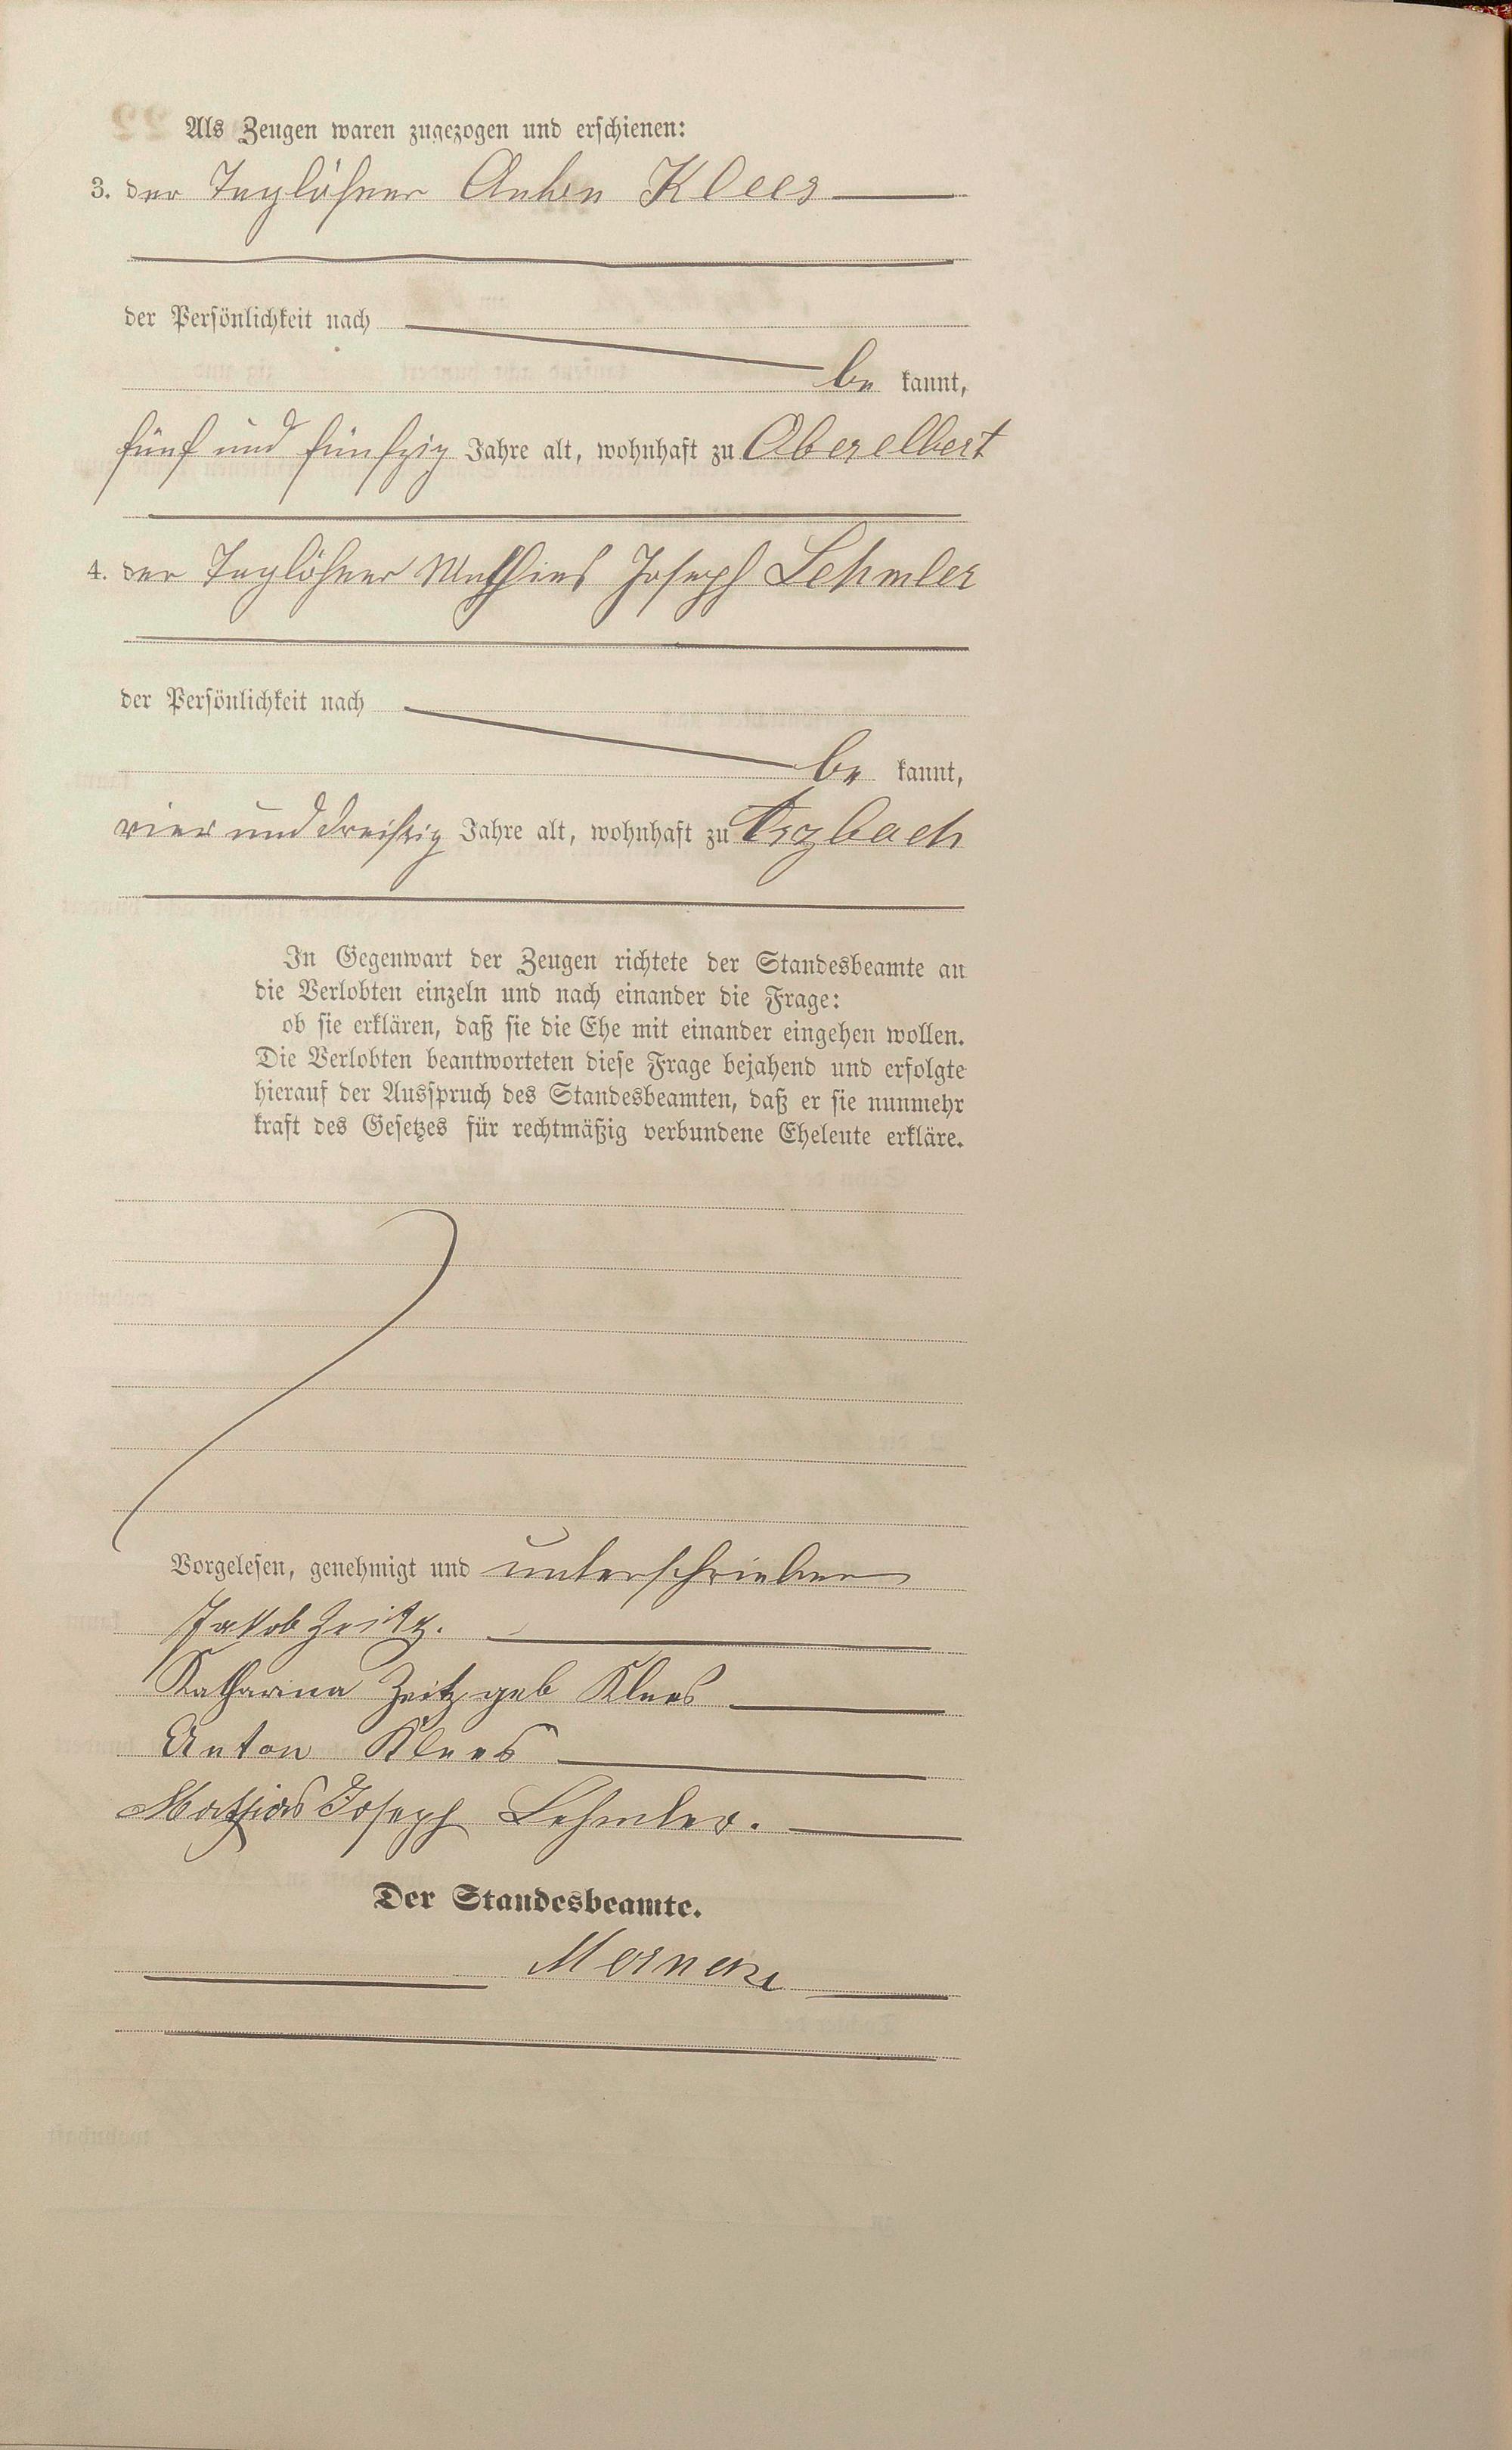 Als Zeugen waren zugezogen und erschienen:
3. der Taglöhner Anton Klees
der Persönlichkeit nach
be kannt,
fünf und fünfzig Jahre alt, wohnhaft zu Oberelbert
4. der Taglöhner Mathias Joseph Lehmler
der Persönlichkeit nach
be kannt,
vier und dreißig Jahre alt, wohnhaft zu Arzbach
In Gegenwart der Zeugen richtete der Standesbeamte an
die Verlobten einzeln und nach einander die Frage:
ob sie erklären, daß sie die Ehe mit einander eingehen wollen.
Die Verlobten beantworteten diese Frage bejahend und erfolgte
hierauf der Ausspruch des Standesbeamten, daß er sie nunmehr
kraft des Gesetzes für rechtmäßig verbundene Eheleute erkläre.
Vorgelesen, genehmigt und unterschrieben
Jakob Zeitz.
Katharina Zeitz geb Klees
Anton Klees
Mathias Joseph Lehmler.
Der Standesbeamte.